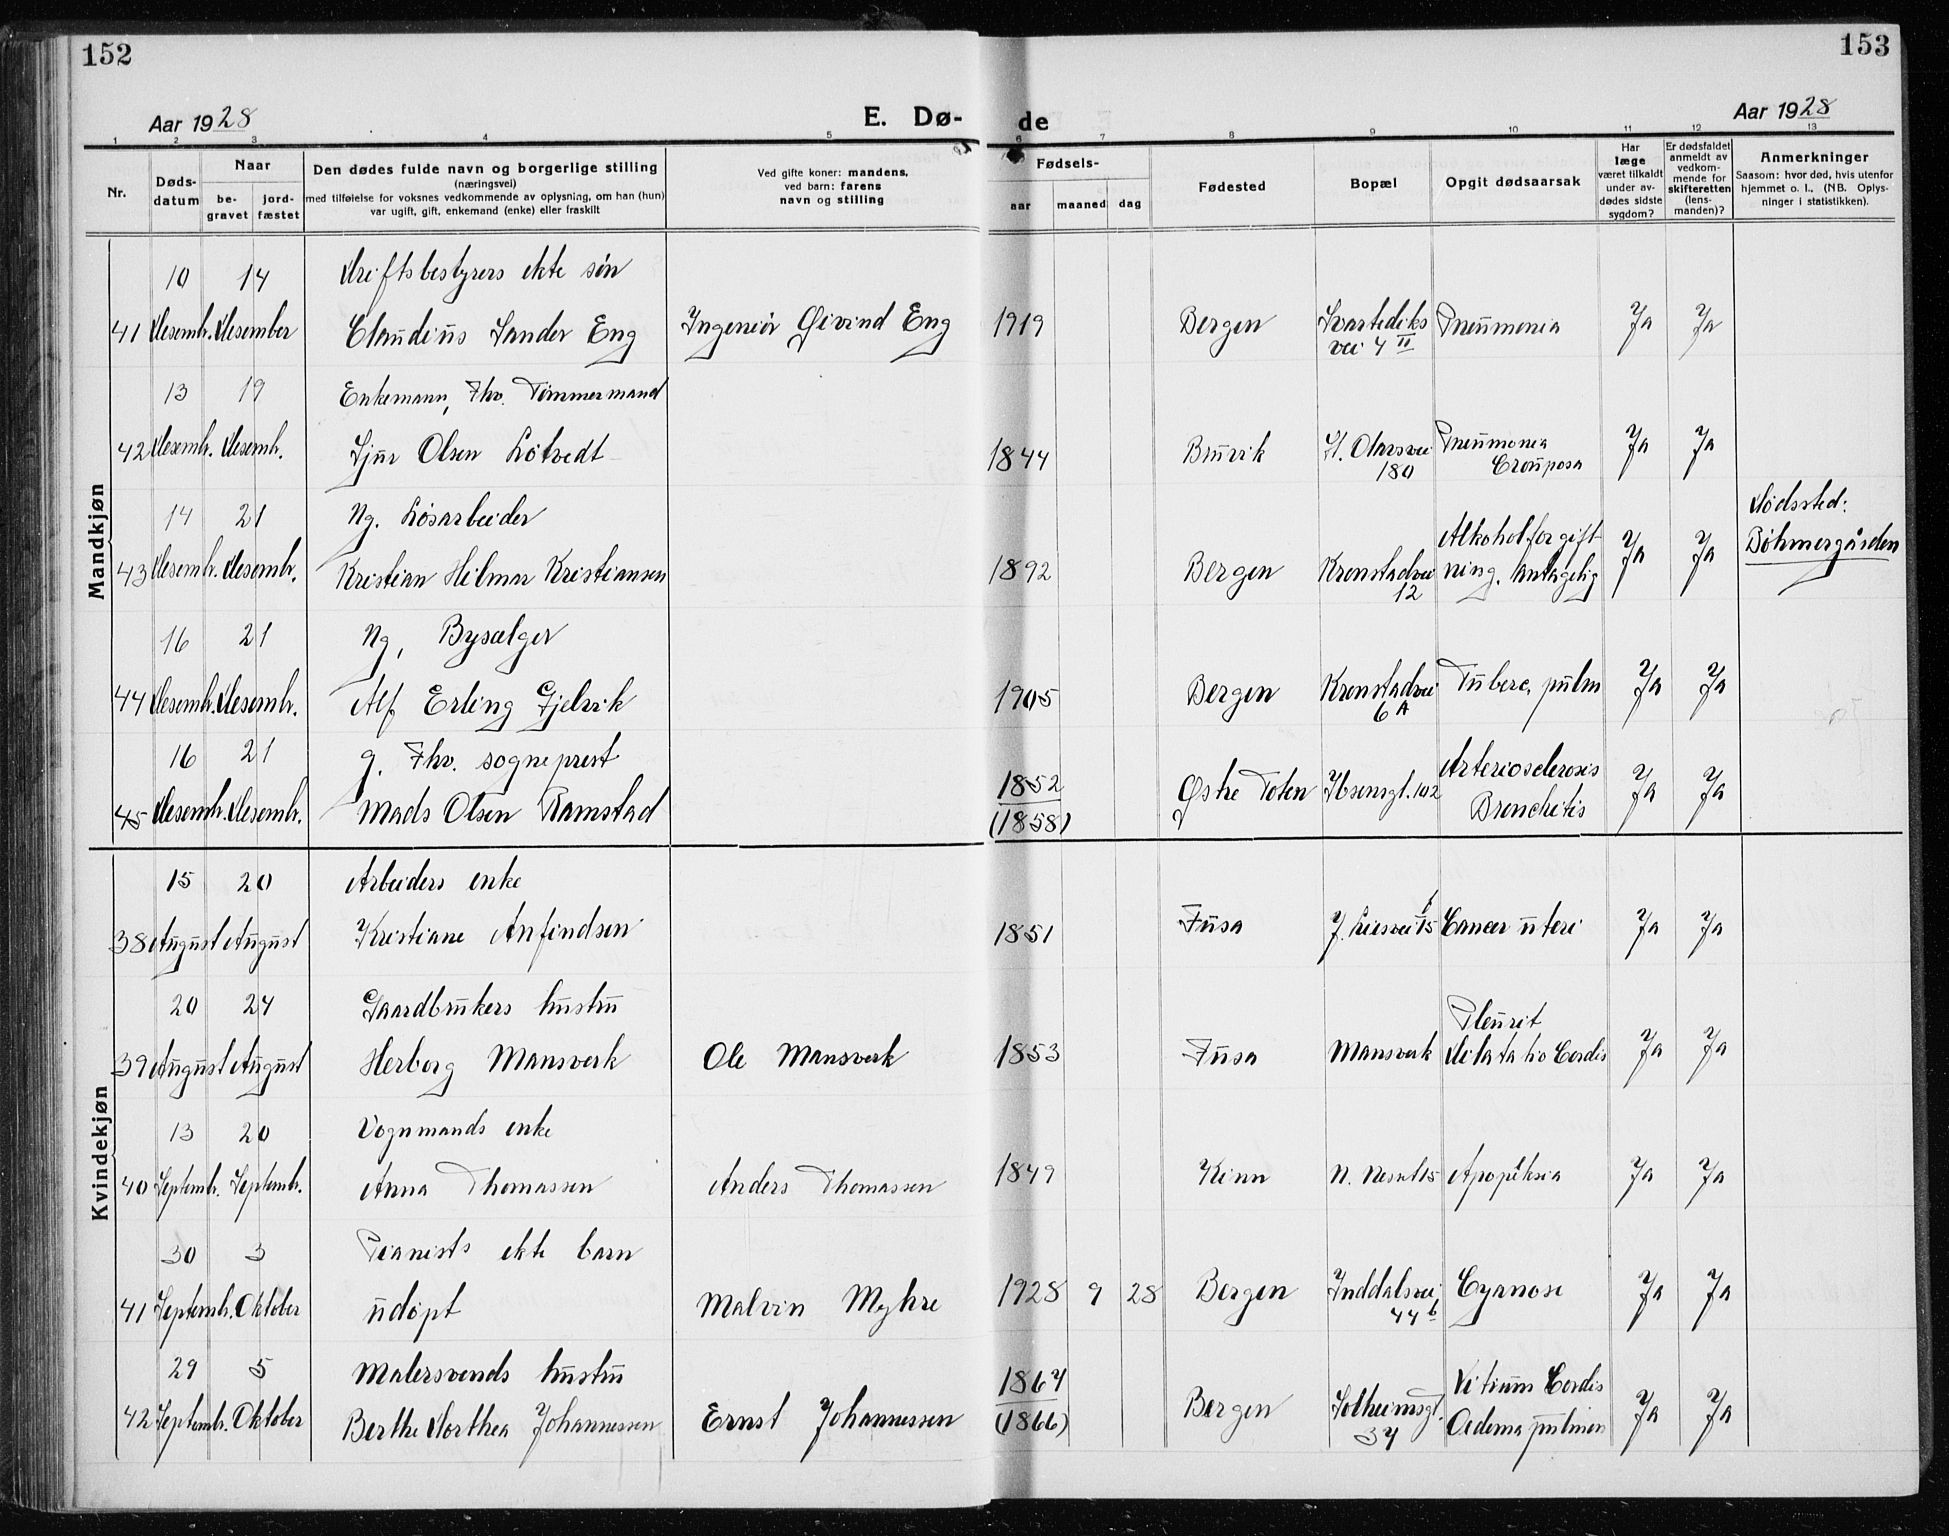 152
153
Aar 1928
E. Dø-
de
Aar 1928
1 2 3 4 5 6 7 8 9 10 11 12 13
Nr.
Døds-
datum
Naar
be-
gravet
jord-
fæstet
Den dødes fulde navn og borgerlige stilling
(næringsvei)
med tilføielse for voksnes vedkommende av oplysning, om han (hun)
var ugift, gift, enkemand (enke) eller fraskilt
Ved gifte koner: mandens,
ved barn: farens
navn og stilling
Fødsels-
aar
maaned
dag
Fødested
Bopæl
Opgit dødsaarsak
Har
læge
været tilkaldt
under av-
dødes sidste
sygdom?
Er dødsfaldet
anmeldt av
vedkom-
mende for
skifteretten
(lens-
manden)?
Anmerkninger
Saasom: hvor død, hvis utenfor
hjemmet o. l., (NB. Oplys-
ninger i statistikken).
Mandkjøn
10 14 Driftsbestyrers ekte søn
41 Desembr. Desember Claudius Sander Eng Ingeniør Øivind Eng 1919 Bergen Svartediks Pneumonia Ja Ja
vei 4 II
13 19 Enkemann, Fhv. Tømmermand
42 Desembr. Desembr. Sjur Olsen Løtvedt 1844 Bruvik St. Olavsvei Pneumonia Ja Ja
180 Crouposa
14 21 Ug. Løsarbeider Dødssted:
43 Desembr. Desembr. Kristian Hilmar Kristiansen 1892 Bergen Kronstadvei Alkoholforgift Ja Ja Bøhmergården
12 ning. Antagelig
16 21 Ug, Bysælger
44 Desembr. Desembr. Alf Erling Gjelvik 1905 Bergen Kronstadvei Tuberc, pulm Ja Ja
6A
16 21 g. Fhv. sogneprest 1852 Arteriosclerosis
45 Desembr. Desembr. Mads Olsen Ramstad (1858) Østre Toten Ibsensgt. 102 Bronchitis Ja Ja
Kvindekjøn
15 20 Arbeiders enke
38 August August Kristiane Anfindsen 1851 Fusa J. Liesvei 15 b Cancer uteri Ja Ja
20 24 Gaardbrukers hustru Pleurit
39 August August Herborg Mansverk Ole Mansverk 1853 Fusa Mansverk Dilatatio Cordis Ja Ja
13 20 Vognmands enke
40 Septembr. Septembr. Anna Thomassen Anders Thomassen 1849 Kinn Apopleksia Ja Ja
30 3 Pianists ekte barn
41 Septembr. Oktober udøpt Malvin Myhre 1928 9 28 Bergen Inddalsvei Cyanose Ja Ja
44 b
29 5 Malersvends hustru 1867 Vitium Cordis
42 Septembr. Oktober Berthe Dorthea Johannessen Ernst Johannessen (1866) Bergen Solheimsgt. Oedema pulmon Ja Ja
34